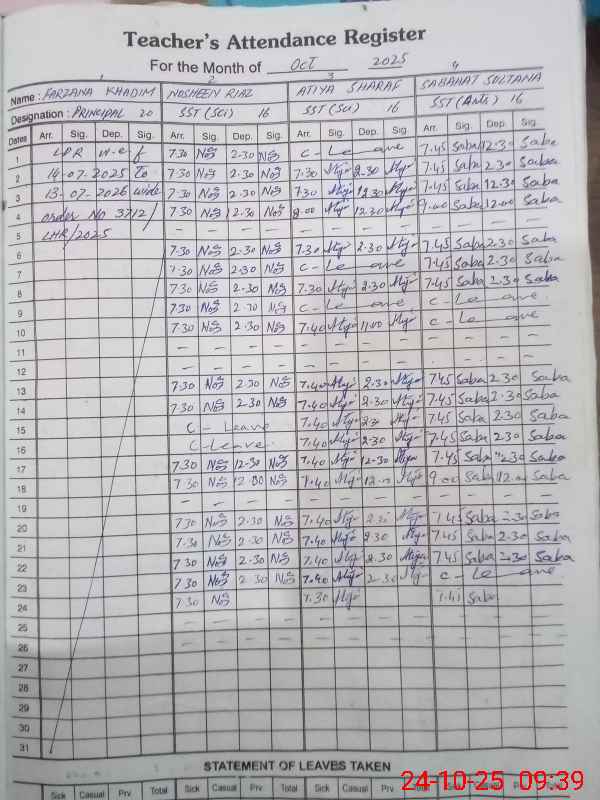 Teacher's Attendance Register
For the Month of Oct 2025
1 2 3 4
Name : FARZANA KHADIM NOSHEEN RIAZ ATIYA SHARAF SABAHAT SULTANA
Designation : PRINCIPAL 20 SST (Sci) 16 SST (Sci) 16 SST (Arts) 16
Dates Arr. Sig. Dep. Sig. Arr. Sig. Dep. Sig. Arr. Sig. Dep. Sig. Arr. Sig. Dep. Sig.
1 LPR w-e-f 7.30 2-30 C - Le ave 7.45 Saba 12.30 Saba
2 14-07-2025 to 7.30 2.30 7.30 2.30 7.45 Saba 2.30 Saba
3 13-07-2026 wide 7.30 2.30 7.30 12.30 7.45 Saba 12.30 Saba
4 order No 3712/ 7.30 12.30 8.00 12.30 9.00 Saba 12.00 Saba
5 LHR/2025 - - - - - - - - - - - -
6 7.30 2.30 7.30 2.30 7.45 Saba 2.30 Saba
7 7.30 2.30 C - Le ave 7.45 Saba 2.30 Saba
8 7.30 2.30 7.30 2.30 7.45 Saba 2.30 Saba
9 7.30 2.30 C - Le ave C - Le ave
10 7.30 2.30 7.40 11.00 C - Le ave
11 - - - - - - - - - - - -
12 - - - - - - - - - - - -
13 7.30 2.30 7.40 2.30 7.45 Saba 2.30 Saba
14 7.30 2.30 7.40 2.30 7.45 Saba 2.30 Saba
15 C - Leave 7.40 2.30 7.45 Saba 2.30 Saba
16 C - Leave 7.40 2.30 7.45 Saba 2.30 Saba
17 7.30 12.30 7.40 12.30 7.45 Saba 12.30 Saba
18 7.30 12.00 7.40 12.00 9.00 Saba 12.00 Saba
19 - - - - - - - - - - - -
20 7.30 2.30 7.40 2.30 7.45 Saba 2.30 Saba
21 7.30 2.30 7.40 2.30 7.45 Saba 2.30 Saba
22 7.30 2.30 7.40 2.30 7.45 Saba 2.30 Saba
23 7.30 2.30 7.40 2.30 C - Le ave
24 7.30 7.30 7.45 Saba
25 - - - - - - - - - - - -
26 - - - - - - - - - - - -
27
28
29
30
31
STATEMENT OF LEAVES TAKEN
Sick Casual Prv Total Sick Casual Prv Total Sick Casual Prv Total Sick
24-10-25 09:39